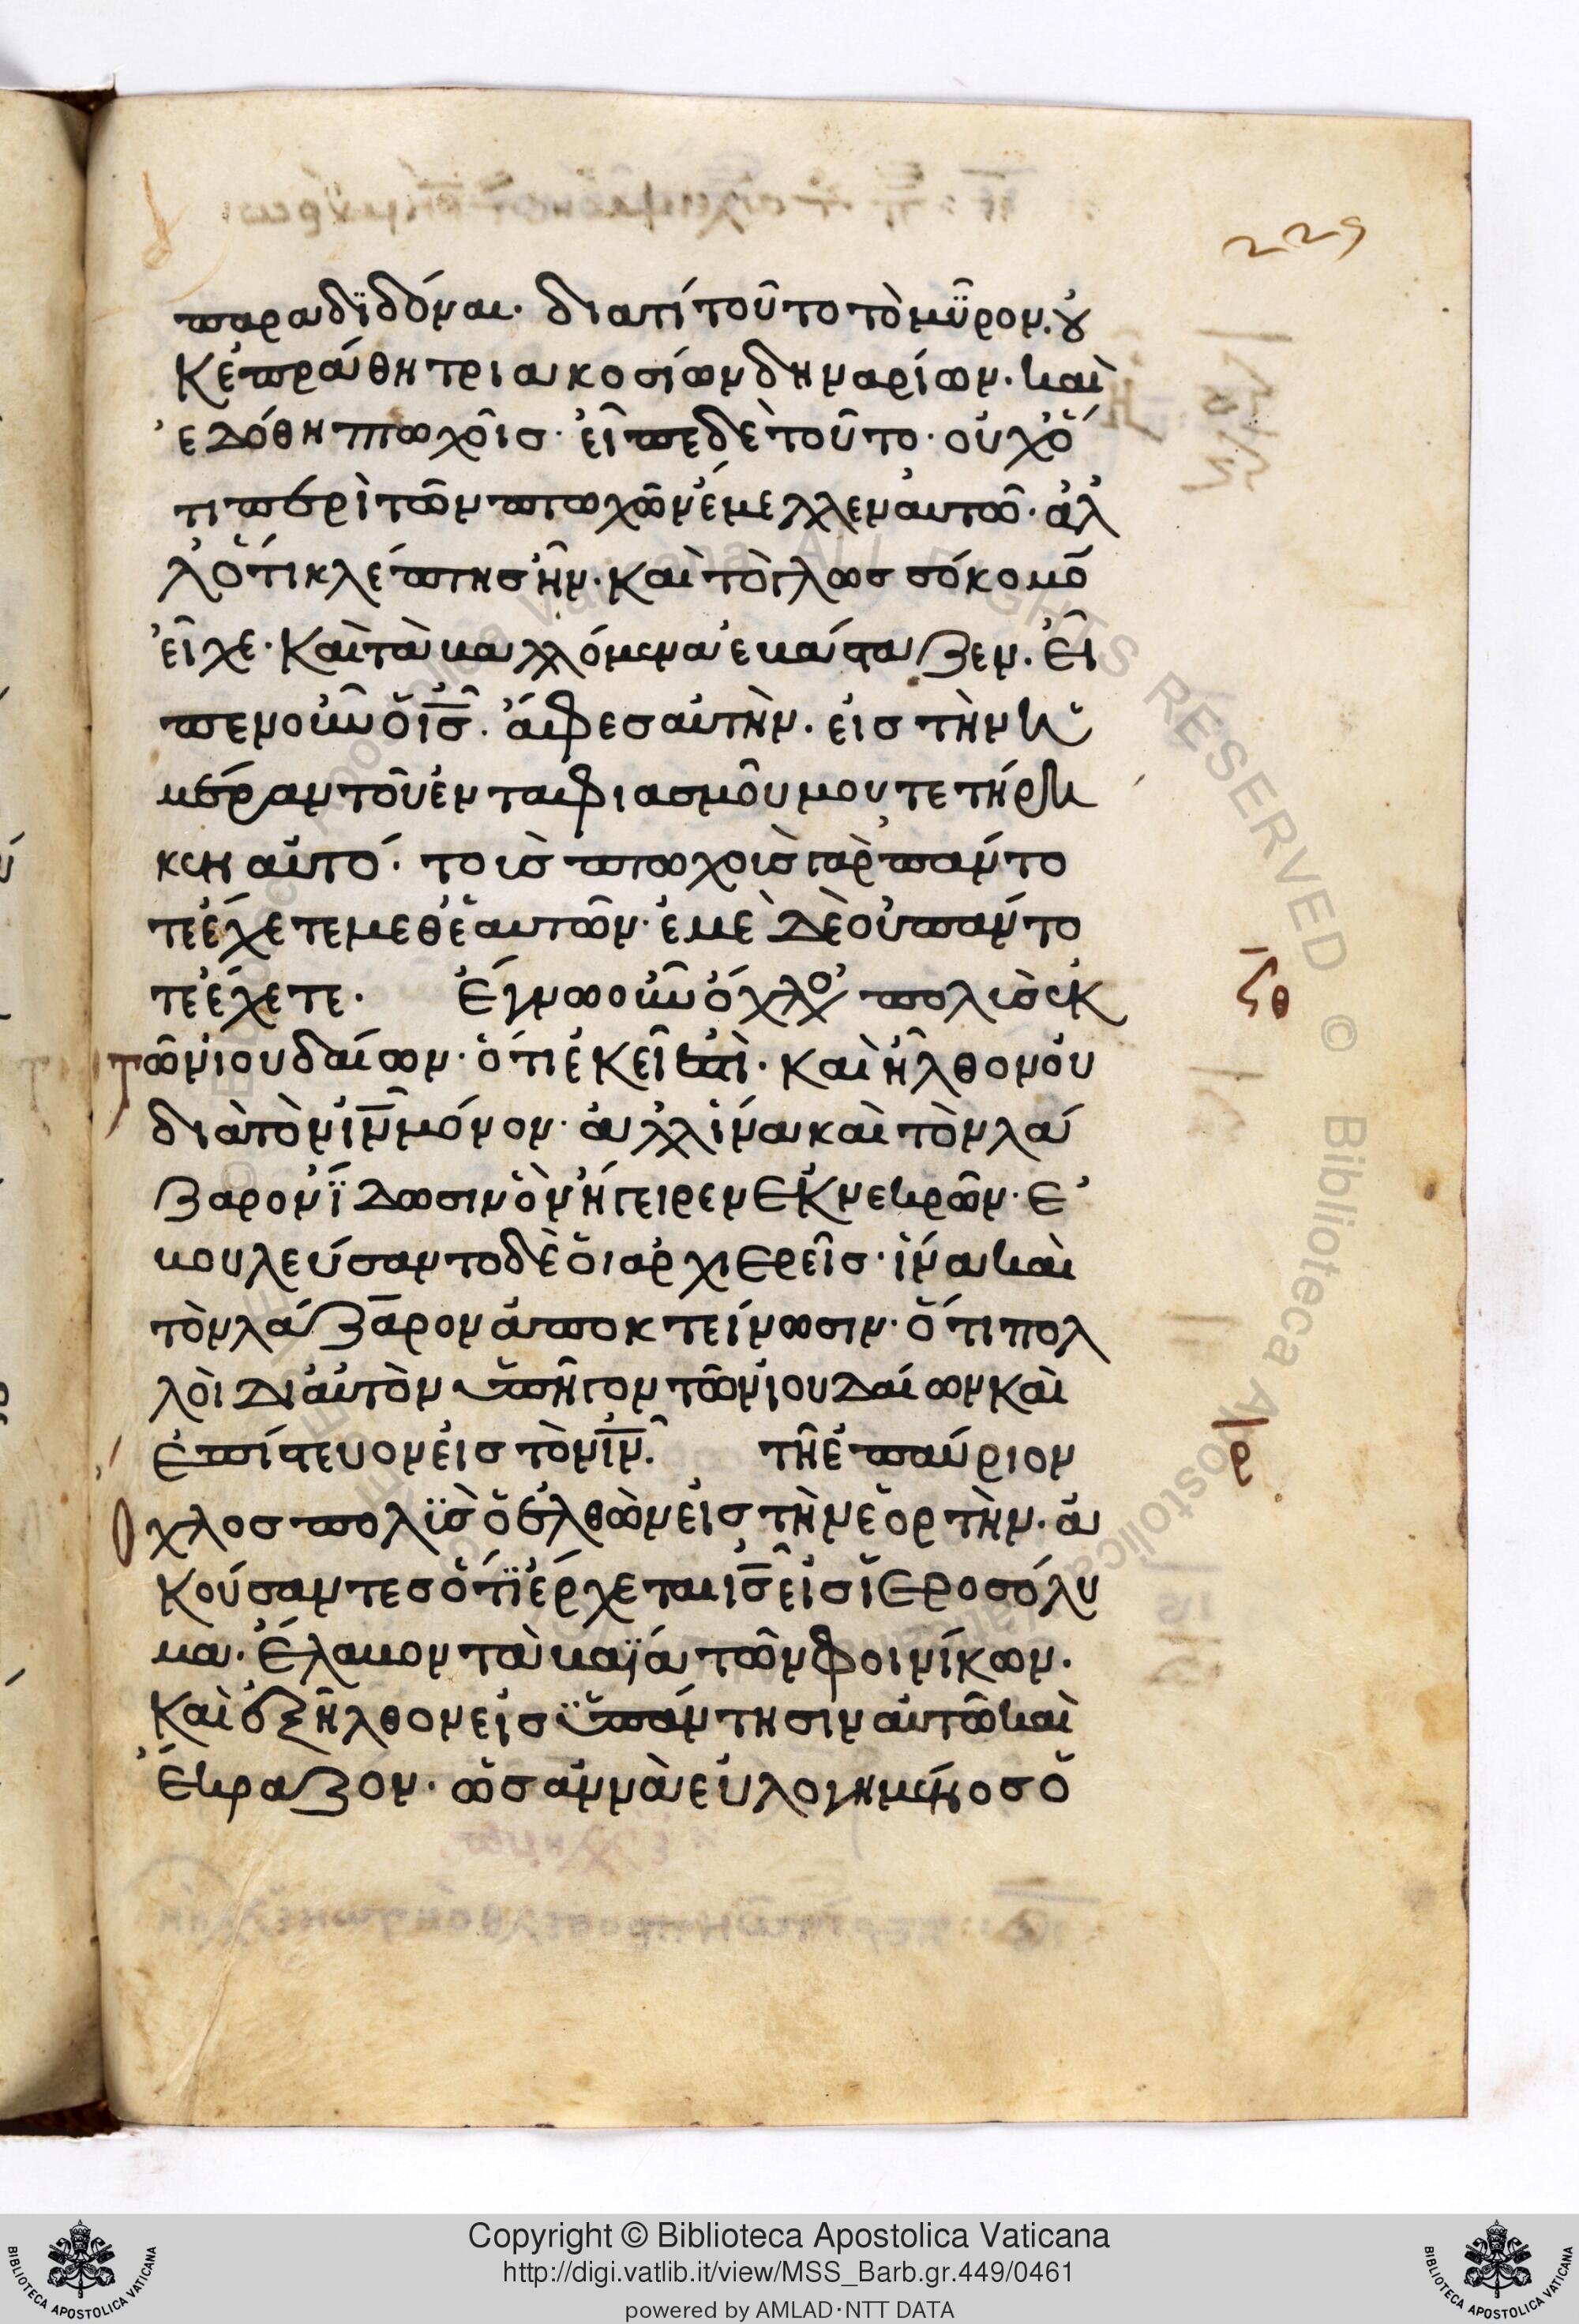 229
παραδϊδόναι· διατί τοῦτο τὸ μῦρον. οὐ
κ ἐπράθη τριακοσίων δηναρίων· καὶ
ἐδόθη πτωχοῖς· εἶπε δὲ τοῦτο· οὐχ ὅ
τι περὶ τῶν πτωχῶν ἔμελλεν αὐτῶ· ἀλ
λ' ὅτι κλέπτης ἦν· καὶ τὸ γλωσσόκομο̄
εἶχε· καὶ τὰ βαλλόμενα ἐβάσταζεν. εἶ
πεν οὖν ὁ ις̅. ἄφες αὐτὴν. εἰς τὴν ἡ
μέραν τοῦ ἐνταφιασμοῦ μου τετήρη
κεν αὐτό· τοὺς πτωχοὺς γὰρ πάντο
τε ἔχετε μεθ' ἑαυτῶν· ἐμὲ δὲ οὐ πάντο
τε ἔχετε· ἔγνω οὖν ὄχλος πολὺς ἐκ
ϟθ
τῶν ιουδαίων· ὅτι ἐκεῖ ἐστὶ· καὶ ἦλθον οὐ
διὰ τὸν ιν̅ μόνον· ἀλλ' ἵνα καὶ τὸν λά
ζαρον ἴδωσιν ὃν ἤγειρεν ἐκ νεκρῶν· ἐ
βουλεύσαντο δὲ οἱ αρχιερεῖς· ἵνα καὶ
τὸν λάζαρον ἀποκτείνωσιν· ὅτι πολ
λοὶ δι' αὐτὸν ὑπῆγον τῶν ιουδαίων καὶ
ἐπίστευον εἰς τὸν ιν̅. τῆ ἐπαύριον
ρ
ὄχλος πολϊς ὁ ἐλθὼν εἰς τὴν ἑορτὴν· ἀ
κούσαντες ὅτϊ ἔρχεται ις̅ εἰς ἱεροσόλυ
μα· ἔλαβον τὰ βαϊά τῶν φοινίκων·
καὶ ἐξῆλθον εἰς ὑπάντησιν αὐτῶ καὶ
ἔκραζον· ὡσαννὰ εὐλογημένος ὁ
Copyright © Biblioteca Apostolica Vaticana
http://digi.vatlib.it/view/MSS_Barb.gr.449/0461
powered by AMLAD·NTT DATA